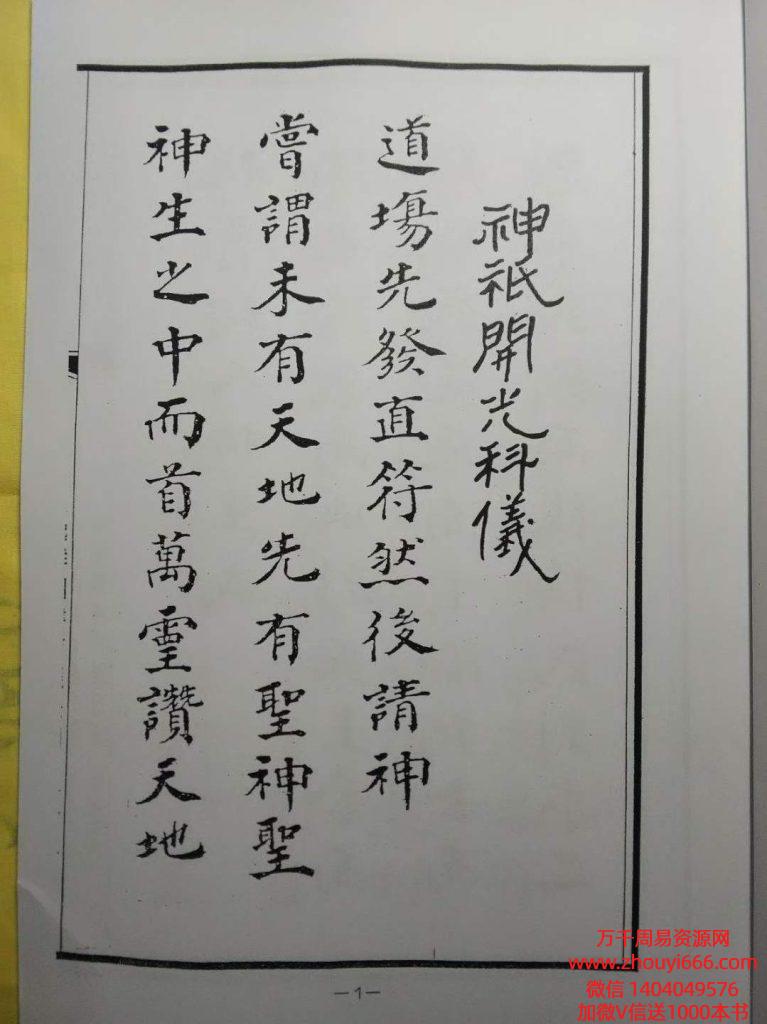 神祇開光科儀
道塲先發直符然後請神
嘗謂未有天地先有聖神聖
神生之中而首萬靈讚天地
—1—
万千周易资源网
www.zhouyi666.com
微信 1404049576
加微V信送1000本书